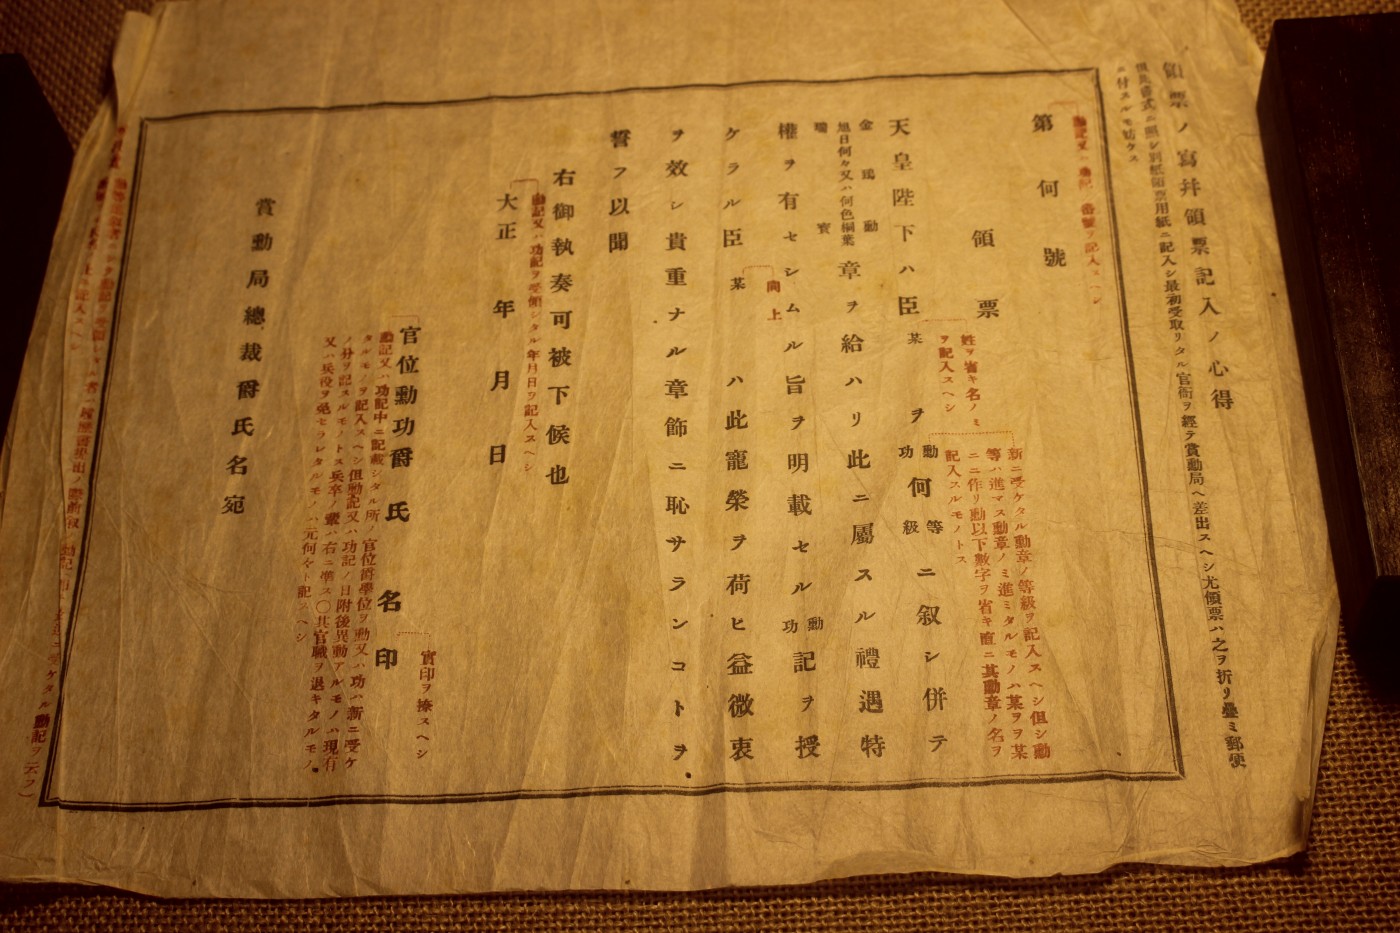 領票ノ寫幷領票記入ノ心得
但此書式ニ照シ別紙領票用紙ニ記入シ最初受取リタル官衙ヲ經テ賞勳局ヘ差出スヘシ尤領票ハ之ヲ折リ疊ミ郵便
ニ付スルモ妨ケス
勳記又ハ功記ノ番號ヲ記入スヘシ
第何號
領票
姓ヲ省キ名ノミ
ヲ記入スヘシ
新ニ受ケタル勳章ノ等級ヲ記入スヘシ但シ勳
等ハ進マス勳章ノミ進ミタルモノハ某ヲヲ某
ニニ作リ勳以下數字ヲ省キ直ニ其勳章ノ名ヲ
記入スルモノトス
天皇陛下ハ臣某ヲ勳功何等級ニ叙シ併テ
金鵄勳
旭日何々又ハ何色桐葉
瑞寶
章ヲ給ハリ此ニ屬スル禮遇特
權ヲ有セシムル旨ヲ明載セル勳功記ヲ授
同上
ケラル臣某ハ此寵榮ヲ荷ヒ益微衷
ヲ效シ貴重ナル章飾ニ恥サランコトヲ
誓フ以聞
右御執奏可被下候也
勳記又ハ功記ヲ受領シタル年月日ヲ記入スヘシ
大正年月日
官位勳功爵氏名印
實印ヲ捺スヘシ
勳記又ハ功記中ニ記載シタル所ノ官位爵學位ヲ勳又ハ功ハ新ニ受ケ
タルモノヲ記入スヘシ但勳記又ハ功記ノ日附後異動アルモノハ現有
ノ分ヲ記スルモノトス兵卒ノ業ハ右ニ準ス〇其官職ヲ退キタルモノ
又ハ兵役ヲ免セラレタルモノハ元何々ト記スヘシ
賞勳局總裁爵氏名宛